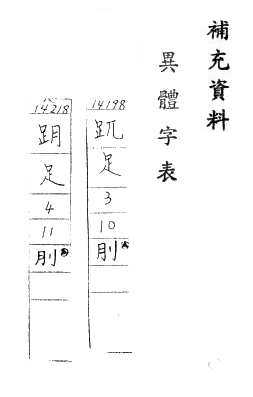 補充資料
異體字表
14198
趴
足
3
10
刖
14218
跀
足
4
11
刖